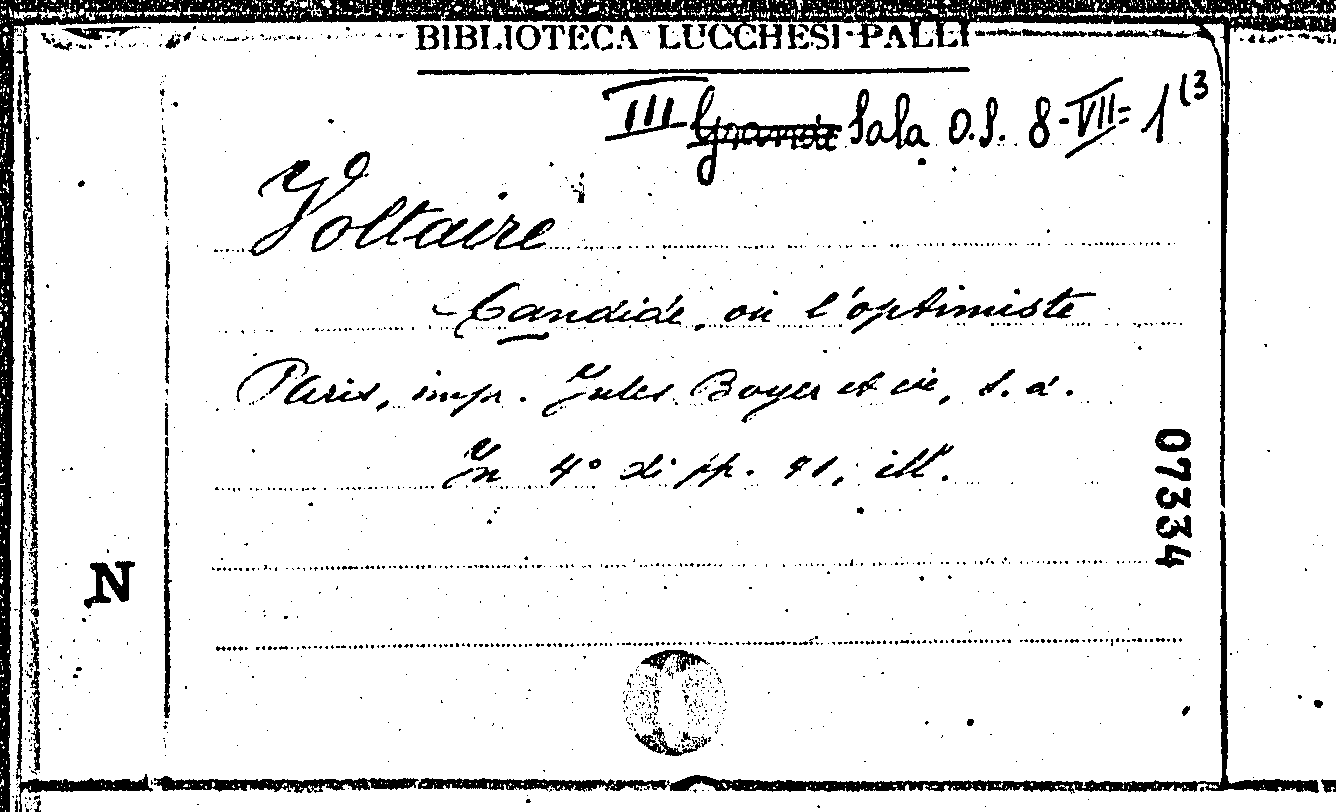 BIBLIOTECA LUCCHESI-PALLI
III Grande Sala O.S. 8-VII=1(3
Voltaire
Candide, ou l'optimiste
Paris, impr. Jules Boyer et cie, s. d.
In 4° di pp. 91, ill.
07334
N